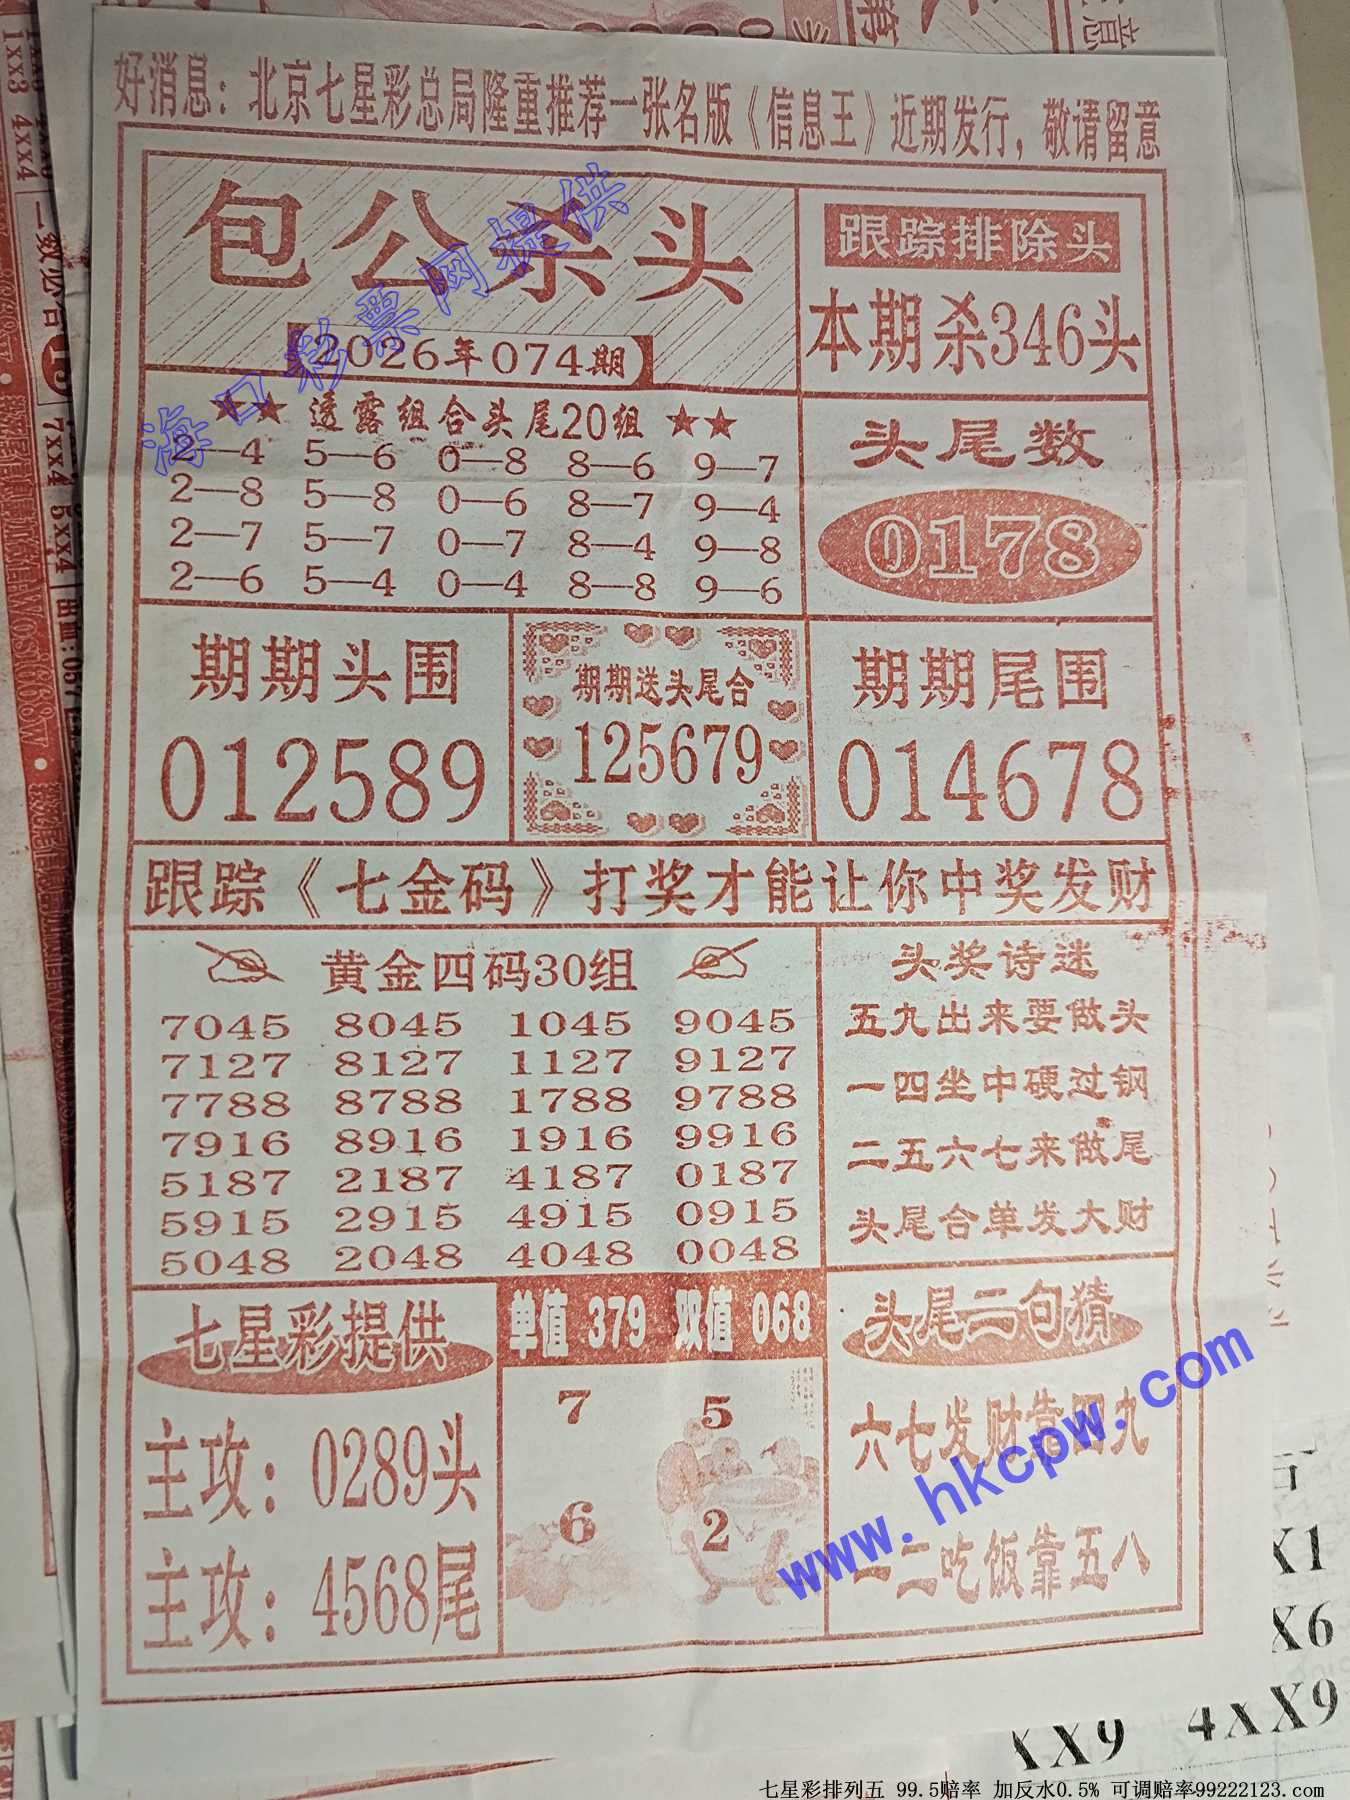 好消息：北京七星彩总局隆重推荐一张名版《信息王》近期发行，敬请留意
包公杀头
2026年074期
跟踪排除头
本期杀346头
★★ 透露组合头尾20组 ★★
2—4 5—6 0—8 8—6 9—7
2—8 5—8 0—6 8—7 9—4
2—7 5—7 0—7 8—4 9—8
2—6 5—4 0—4 8—8 9—6
头尾数
0178
期期头围
012589
期期送头尾合
125679
期期尾围
014678
跟踪《七金码》打奖才能让你中奖发财
黄金四码30组
7045 8045 1045 9045
7127 8127 1127 9127
7788 8788 1788 9788
7916 8916 1916 9916
5187 2187 4187 0187
5915 2915 4915 0915
5048 2048 4048 0048
头奖诗迷
五九出来要做头
一四坐中硬过钢
二五六七来做尾
头尾合单发大财
七星彩提供
主攻：0289头
主攻：4568尾
单值 379 双值 068
7 5
6 2
头尾二句猜
六七发财靠四九
一二吃饭靠五八
海口彩票网提供
www.hkcpw.com
1xx3 4xx4
7xx4 5xx4
X1
X6
XX9 4XX9
七星彩排列五 99.5赔率 加反水0.5% 可调赔率99222123.com